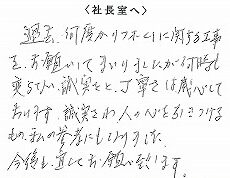 〈社長室へ〉
過去、何度かリフォームに関する工事
を、お願いしてまいりましたが何時も
変らない、誠実さと、丁寧さは感心して
おります。誠実さは人の心をひきつける
もの、私の参考にもなりました。
今後も、宜しくお願い致します。